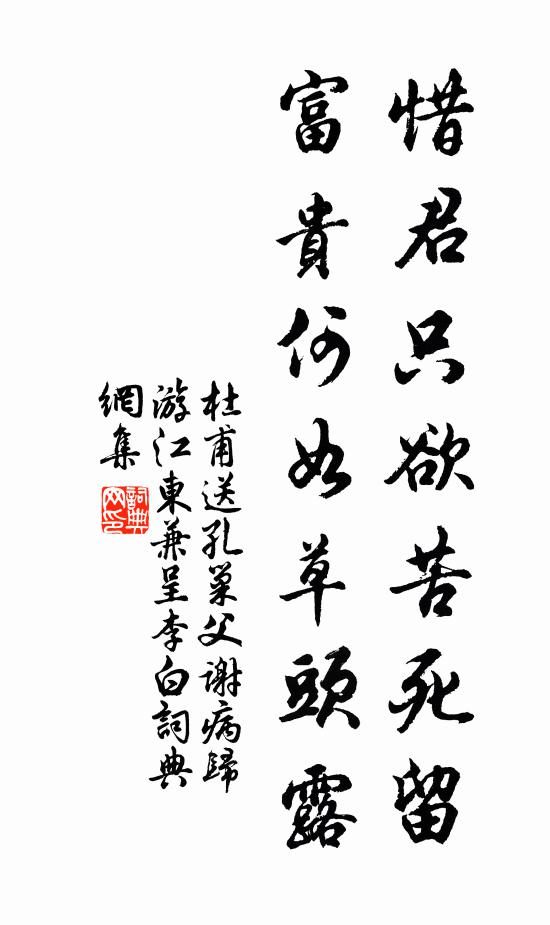 惜君只欲苦死留
富貴何如草頭露
杜甫送孔巢父謝病歸
游江東兼呈李白詞典
網集
詞典網印